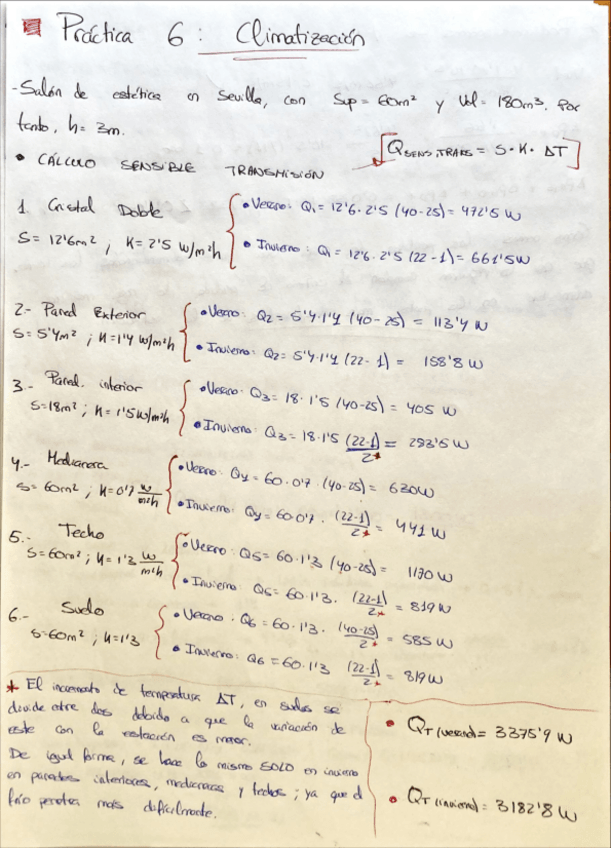 Práctica 6: Climatización
- Salón de estética en Sevilla, con Sup = 60m² y Vol = 180m³. Por
tanto, h = 3m.
• CÁLCULO SENSIBLE TRANSMISIÓN
Q SENS,TRANS = S·K·ΔT
1. Cristal Doble
S = 12'6m², K = 2'5 W/m²h
• Verano: Q₁ = 12'6·2'5 (40-25) = 472'5 W
• Invierno: Q₁ = 12'6·2'5 (22-1) = 661'5W
2.- Pared Exterior
S = 5'4m²; K = 1'4 W/m²h
• Verano: Q₂ = 5'4·1'4 (40-25) = 113'4 W
• Invierno: Q₂ = 5'4·1'4 (22-1) = 158'8 W
3.- Pared interior
S = 18m²; K = 1'5 W/m²h
• Verano: Q₃ = 18·1'5 (40-25) = 405 W
• Invierno: Q₃ = 18·1'5 (22-1)/2* = 293'5 W
4.- Medianera
S = 60m²; K = 0'7 W/m²h
• Verano: Q₄ = 60·0'7·(40-25) = 630W
• Invierno: Q₄ = 60·0'7·(22-1)/2* = 441 W
5.- Techo
S = 60m²; K = 1'3 W/m²h
• Verano: Q₅ = 60·1'3 (40-25) = 1170 W
• Invierno: Q₅ = 60·1'3·(22-1)/2* = 819W
6.- Suelo
S = 60m²; K = 1'3
• Verano: Q₆ = 60·1'3·(40-25)/2* = 585 W
• Invierno: Q₆ = 60·1'3 (22-1)/2* = 819 W
* El incremento de temperatura ΔT, en suelos se
divide entre dos debido a que la variación de
este con la estación es menor.
De igual forma, se hace lo mismo SOLO en invierno
en paredes interiores, medianeras y techos; ya que el
frío penetra más difícilmente.
• QT (verano) = 3375'9 W
• QT (invierno) = 3182'8 W